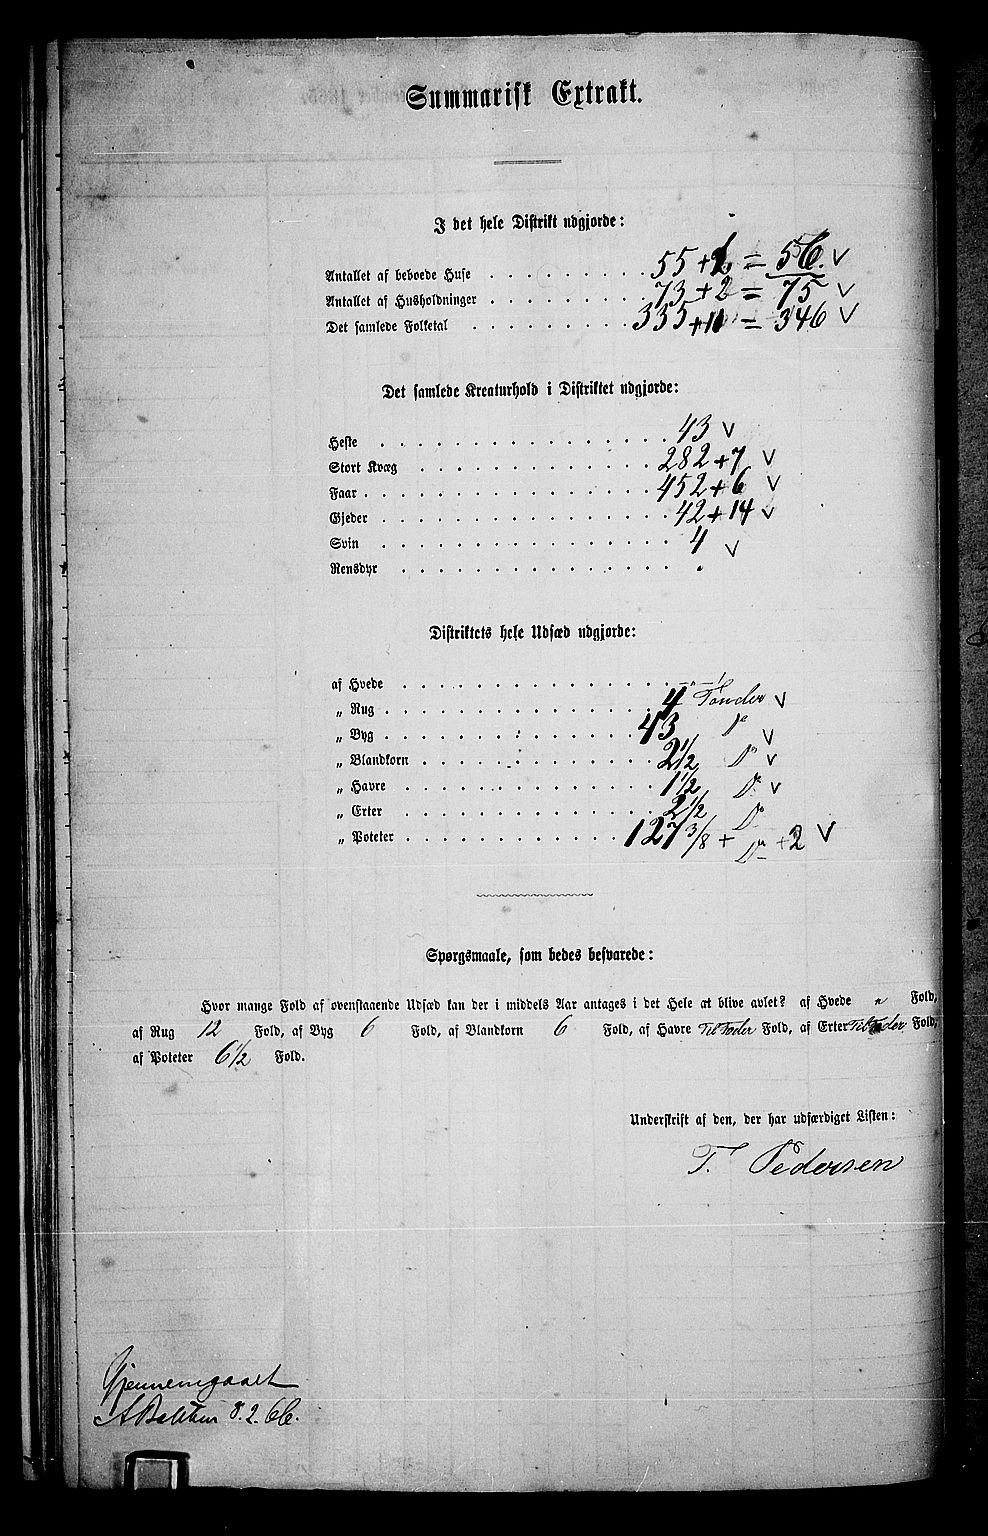 Summarisk Extrakt.
I det hele Distrikt udgjorde:
Antallet af beboede Huse 55 + 1 = 56. V
Antallet af Husholdninger 73 + 2 = 75 V
Det samlede Folketal 335 + 11 = 346 V
Det samlede Kreaturhold i Distriktet udgjorde:
Heste 43 V
Stort Kvæg 282 + 7 V
Faar 452 + 6 V
Gjeder 42 + 14 V
Svin 4 V
Rensdyr "
Distriktets hele Udsæd udgjorde:
af Hvede "
„ Rug 4 Tønder V
„ Byg 43 Do V
„ Blandkorn 2 1/2 Do V
„ Havre 1 1/2 Do V
„ Erter 2 1/2 Do
„ Poteter 127 3/8 + Do + 2 V
Spørgsmaale, som bedes besvarede:
Hvor mange Fold af ovenstaaende Udsæd kan der i middels Aar antages i det Hele at blive avlet? af Hvede " Fold,
af Rug 12 Fold, af Byg 6 Fold, af Blandkorn 6 Fold, af Havre Til Foder Fold, af Erter Til Foder Fold,
af Poteter 6 1/2 Fold.
Underskrift af den, der har udfærdiget Listen:
T. Pedersen
Gjennemgaaet
8.2.66.